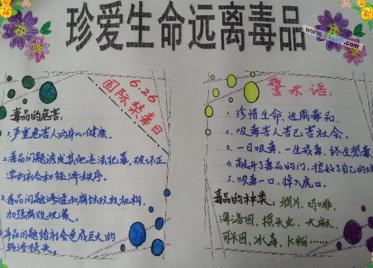 珍爱生命远离毒品
6.26
国际禁毒日
毒品的危害:
1.严重危害人的身心健康。
2.毒品问题诱发其他违法犯罪,破坏正
常的社会和经济秩序。
3.毒品问题渗透和腐蚀政权机构,
加强腐败现象。
4.毒品问题给社会造成巨大的
经济损失。
警示语:
1.珍惜生命,远离毒品。
2.吸毒害人害己害社会。
3.一日吸毒,一生戒毒,终生想毒。
5.吸毒一口,掉入虎口。
毒品的种类:鸦片、吗啡、
海洛因、摇头丸、大麻、
可卡因、冰毒、K粉……